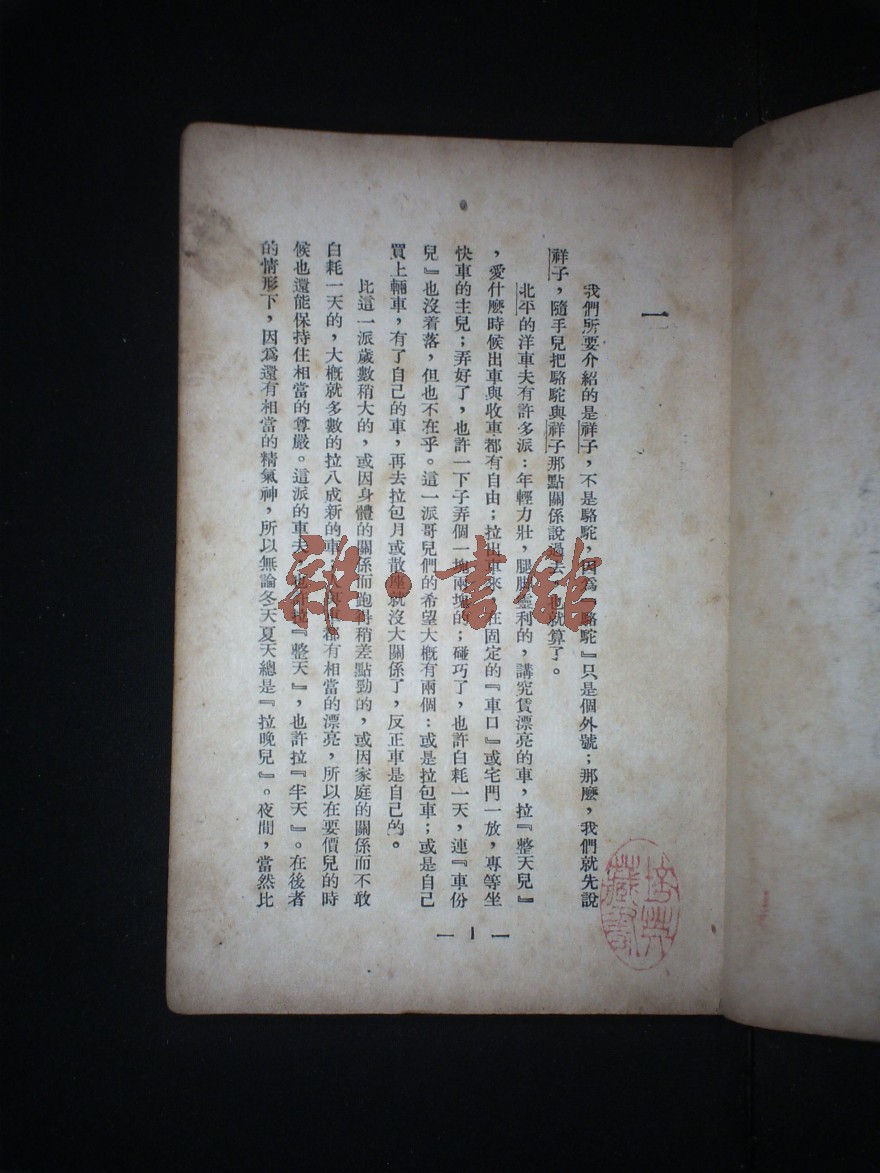 一
我們所要介紹的是祥子，不是駱駝，因爲『駱駝』只是個外號；那麼，我們就先說
祥子，隨手兒把駱駝與祥子那點關係說過去，也就算了。
北平的洋車夫有許多派：年輕力壯，腿脚靈利的，講究賃漂亮的車，拉『整天兒』
，愛什麼時候出車與收車都有自由；拉出車來，在固定的『車口』或宅門一放，專等坐
快車的主兒；弄好了，也許一下子弄個一塊兩塊的；碰巧了，也許白耗一天，連『車份
兒』也沒着落，但也不在乎。這一派哥兒們的希望大概有兩個：或是拉包車；或是自己
買上輛車，有了自己的車，再去拉包月或散座就沒大關係了，反正車是自己的。
比這一派歲數稍大的，或因身體的關係而跑得稍差點勁的，或因家庭的關係而不敢
白耗一天的，大概就多數的拉八成新的車；人與車都有相當的漂亮，所以在要價兒的時
候也還能保持住相當的尊嚴。這派的車夫，也許拉『整天』，也許拉『半天』。在後者
的情形下，因爲還有相當的精氣神，所以無論冬天夏天總是『拉晚兒』。夜間，當然比
— 1 —
雜·書館
藏書